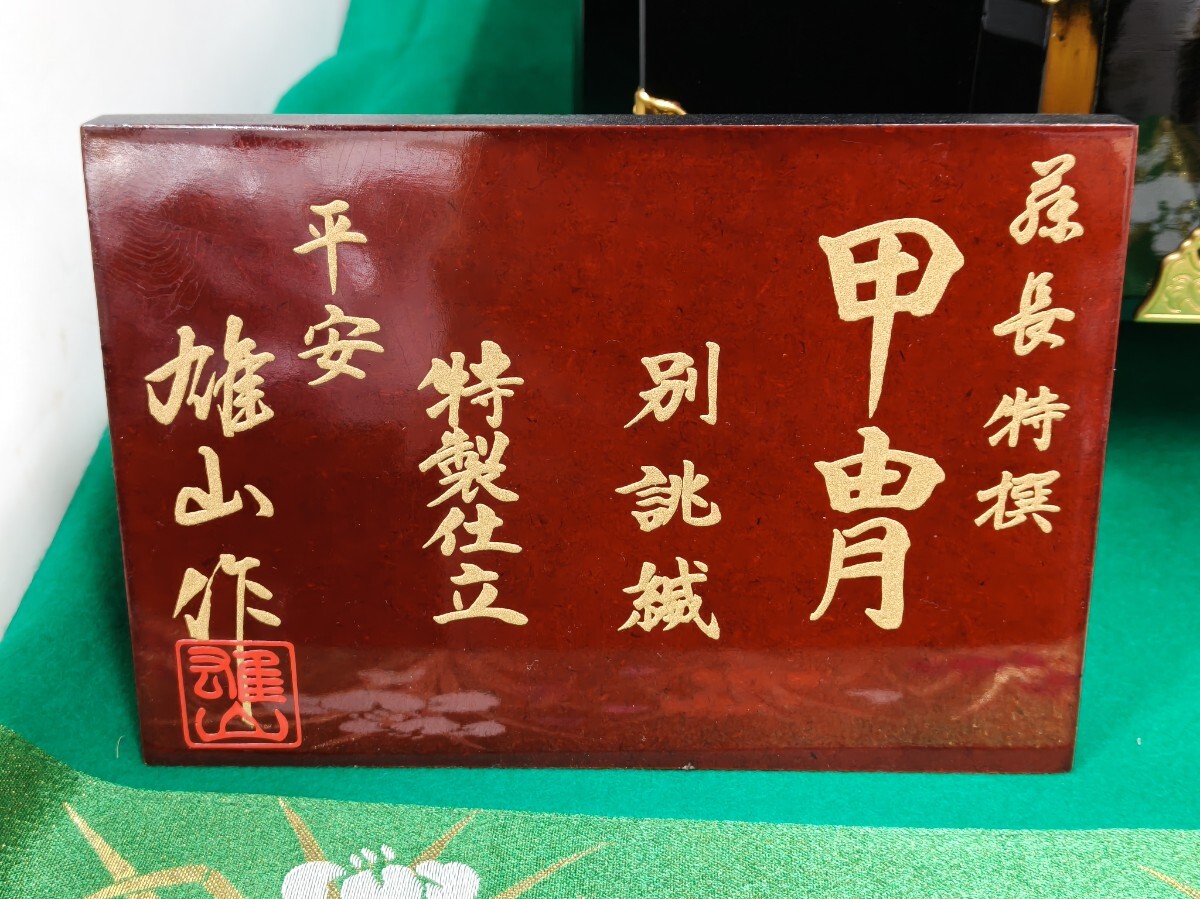 藤長特撰
甲冑
別誂縅
特製仕立
平安
雄山作
雄山